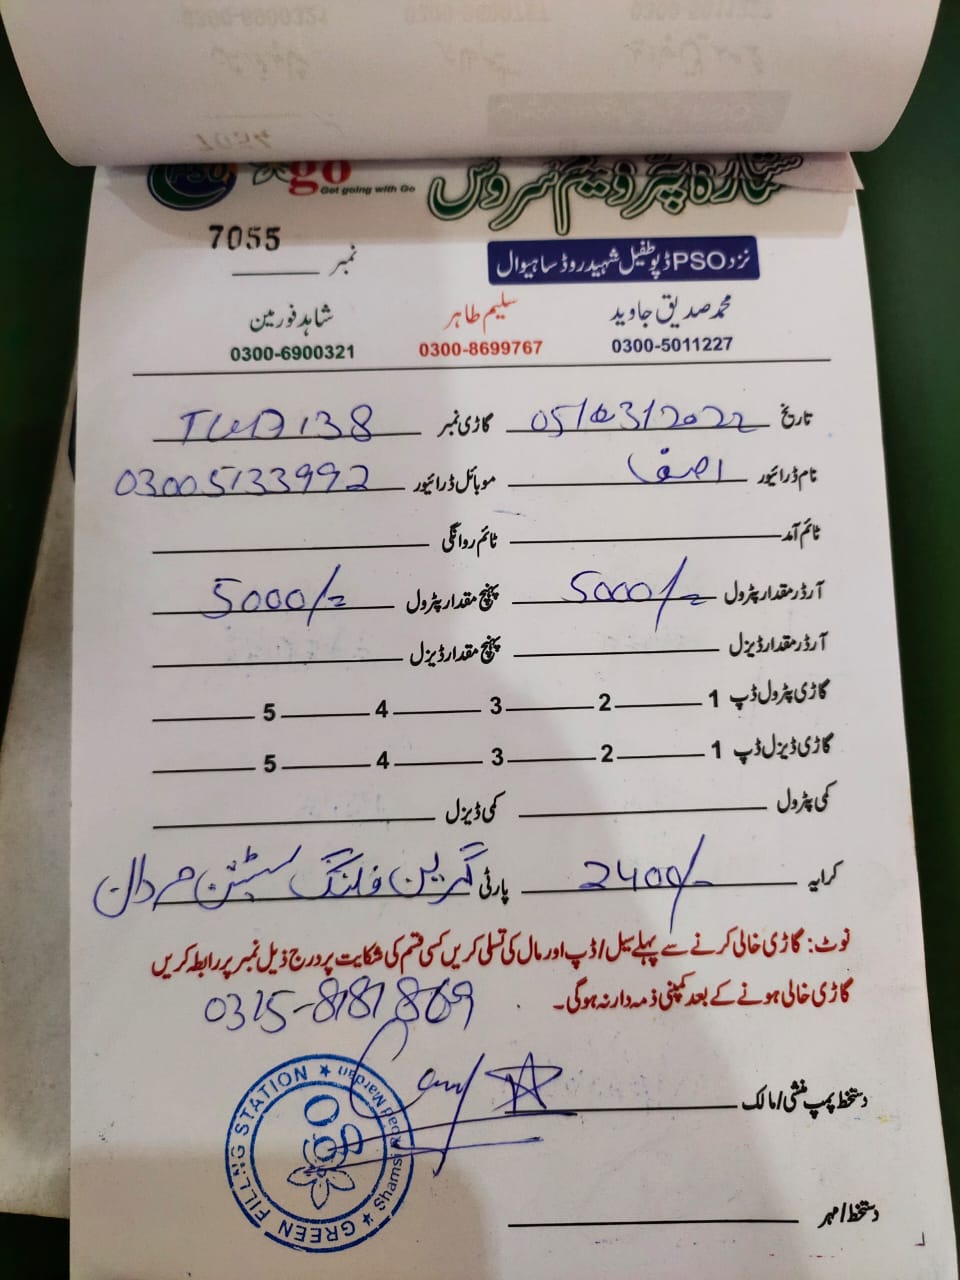 PSO go Got going with Go ستارہ پٹرولیم سروس
نمبر 7055
نزد PSO ڈپو طفیل شہید روڈ ساہیوال
محمد صدیق جاوید سلیم طاہر شاہد فورمین
0300-5011227 0300-8699767 0300-6900321
تاریخ 05/03/2022 گاڑی نمبر
نام ڈرائیور اصف موبائل ڈرائیور 03005133992
ٹائم آمد ٹائم روانگی
آرڈر مقدار پٹرول 5000/- پہنچ مقدار پٹرول 5000/-
آرڈر مقدار ڈیزل پہنچ مقدار ڈیزل
گاڑی پٹرول ڈپ 1 2 3 4 5
گاڑی ڈیزل ڈپ 1 2 3 4 5
کمی پٹرول کمی ڈیزل
کرایہ 2400/- پارٹی گرین فلنگ سٹیشن مردان
نوٹ: گاڑی خالی کرنے سے پہلے سیل/ڈپ اور مال کی تسلی کریں کسی قسم کی شکایت پر درج ذیل نمبر پر رابطہ کریں
گاڑی خالی ہونے کے بعد کمپنی ذمہ دار نہ ہوگی۔
0315-8181869
دستخط پمپ منشی/مالک
GREEN FILLNG STATION ★ Shamsi Road Mardan ★
GO
دستخط/مہر